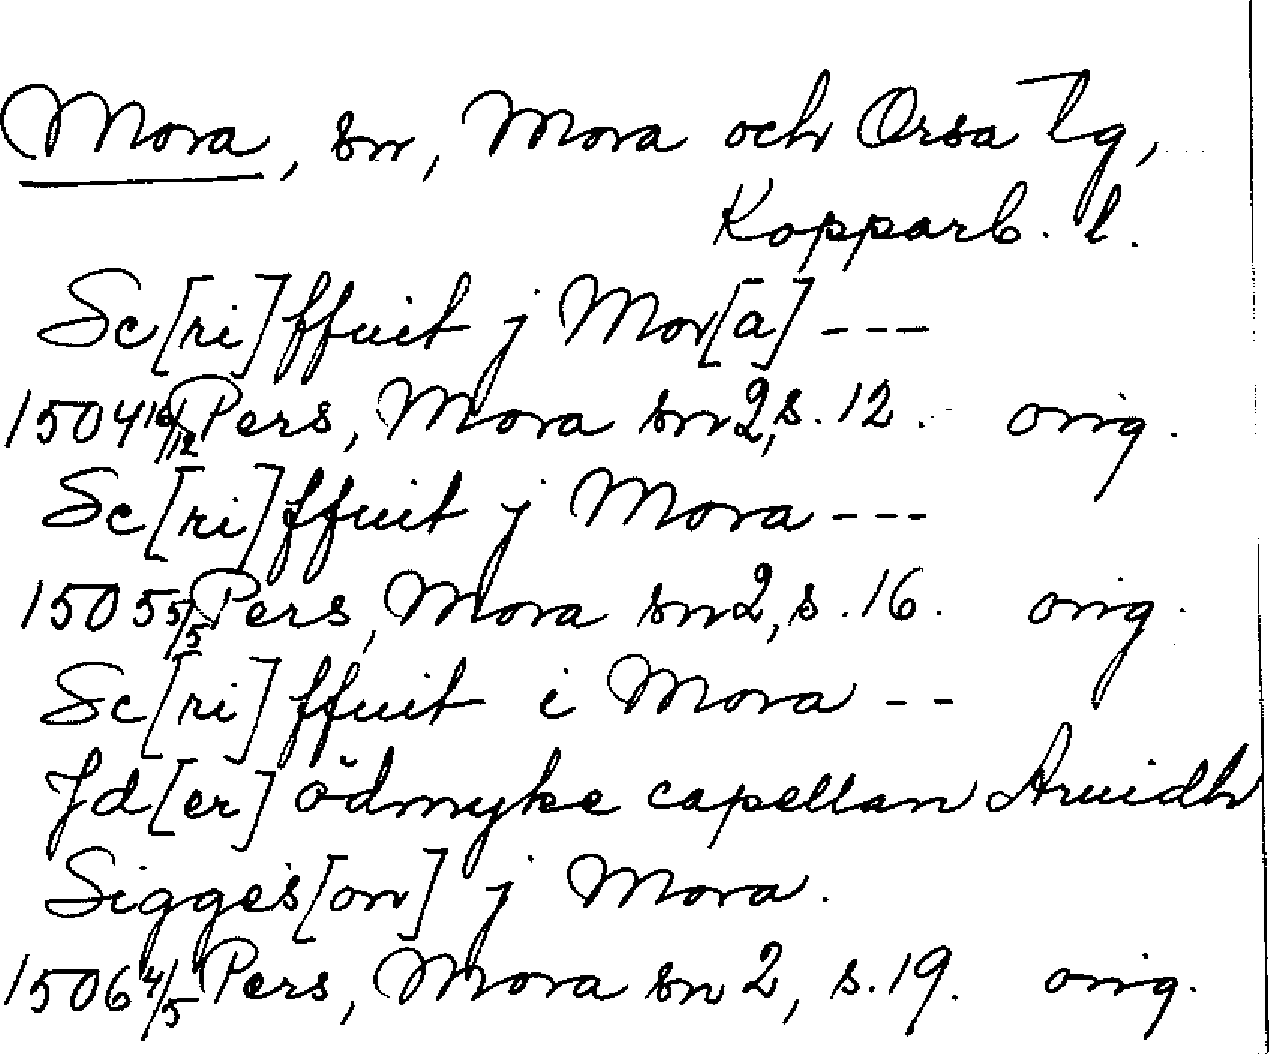 Mora, sn, Mora och Orsa tg,
Kopparb. l.
Sc[ri]ffuit j Mor[a] ---
1504 /12 Pers, Mora sn 2, s. 12. orig.
Sc[ri]ffuit j Mora ---
1505 5/5 Pers, Mora sn 2, s. 16. orig.
Sc[ri]ffuit i Mora --
Jd[er] ödmyke capellan Aruidh
Sigges[on] j Mora.
1506 4/5 Pers, Mora sn 2, s. 19. orig.